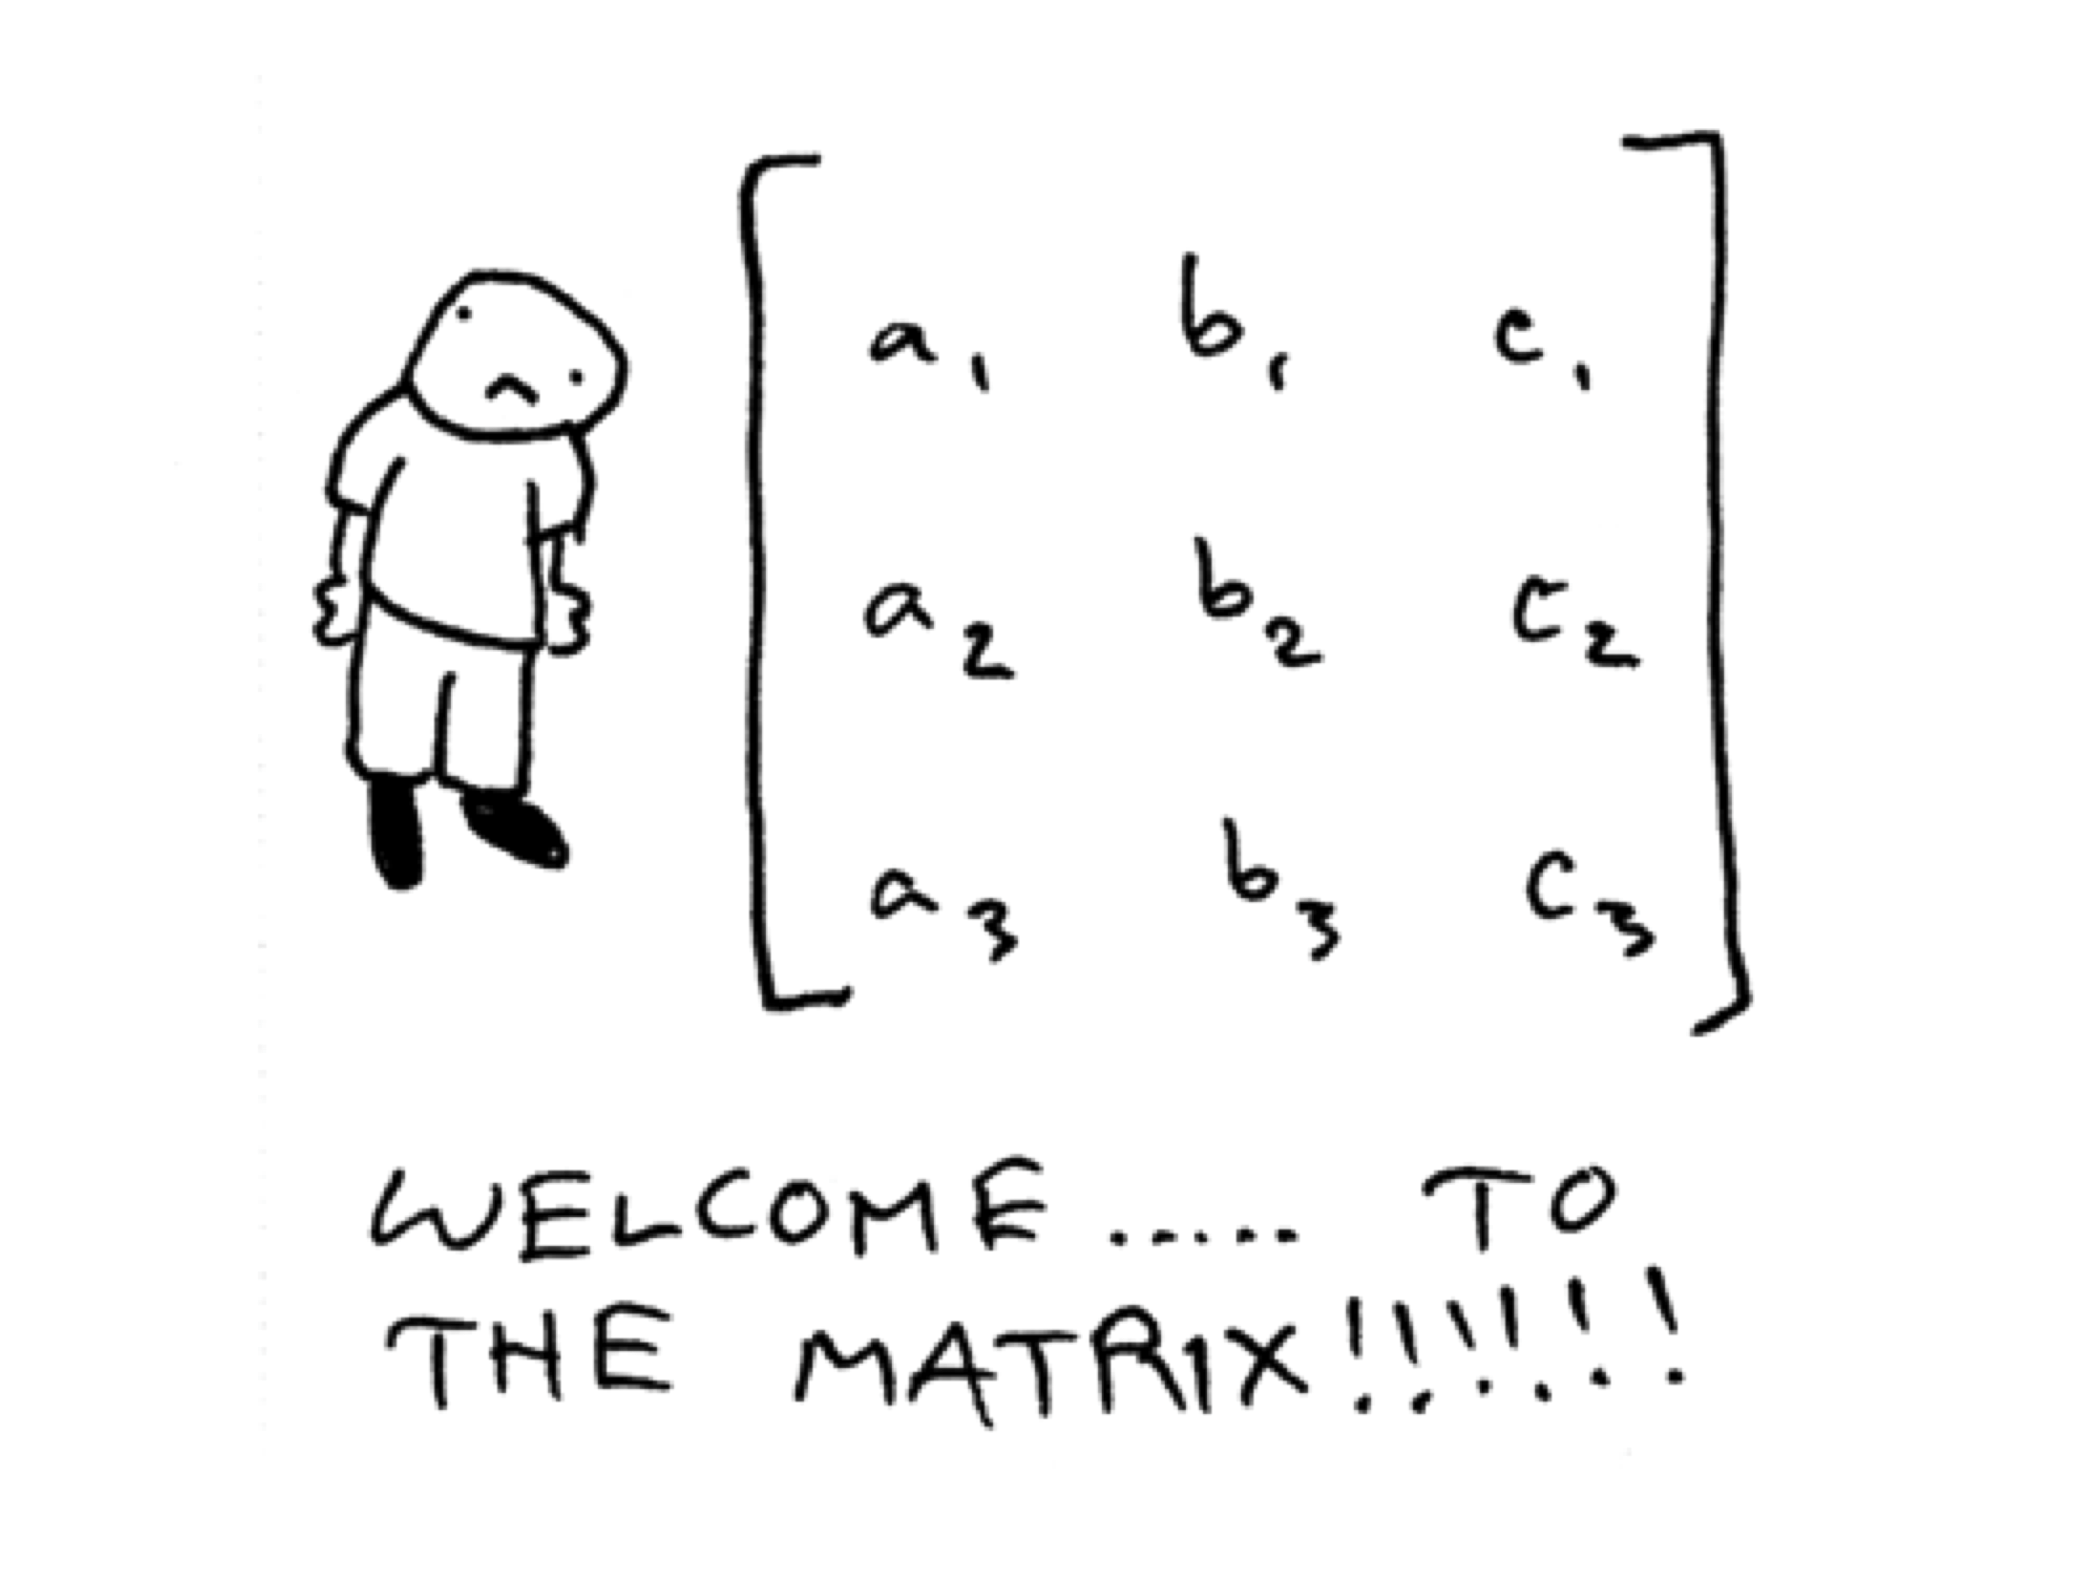 a₁ b₁ c₁
a₂ b₂ c₂
a₃ b₃ c₃
WELCOME..... TO
THE MATRIX!!!!!!